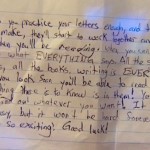 you practice your letters enough, and t
make, they'll start to work together and
you'll be reading!
what EVERYTHING says. All the s
all the books, writing is EVER
you look. Soon you'll be able to read
thing there is to know is in them! Yo
out whatever you want! I
but it won't be hard
so exciting! Good luck!